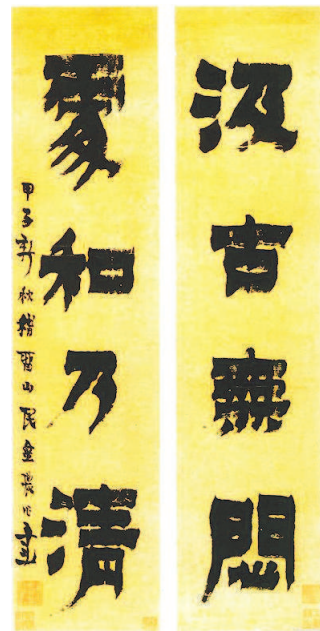 汲古無悶
處和乃清
甲子新秋稽留山民金農作